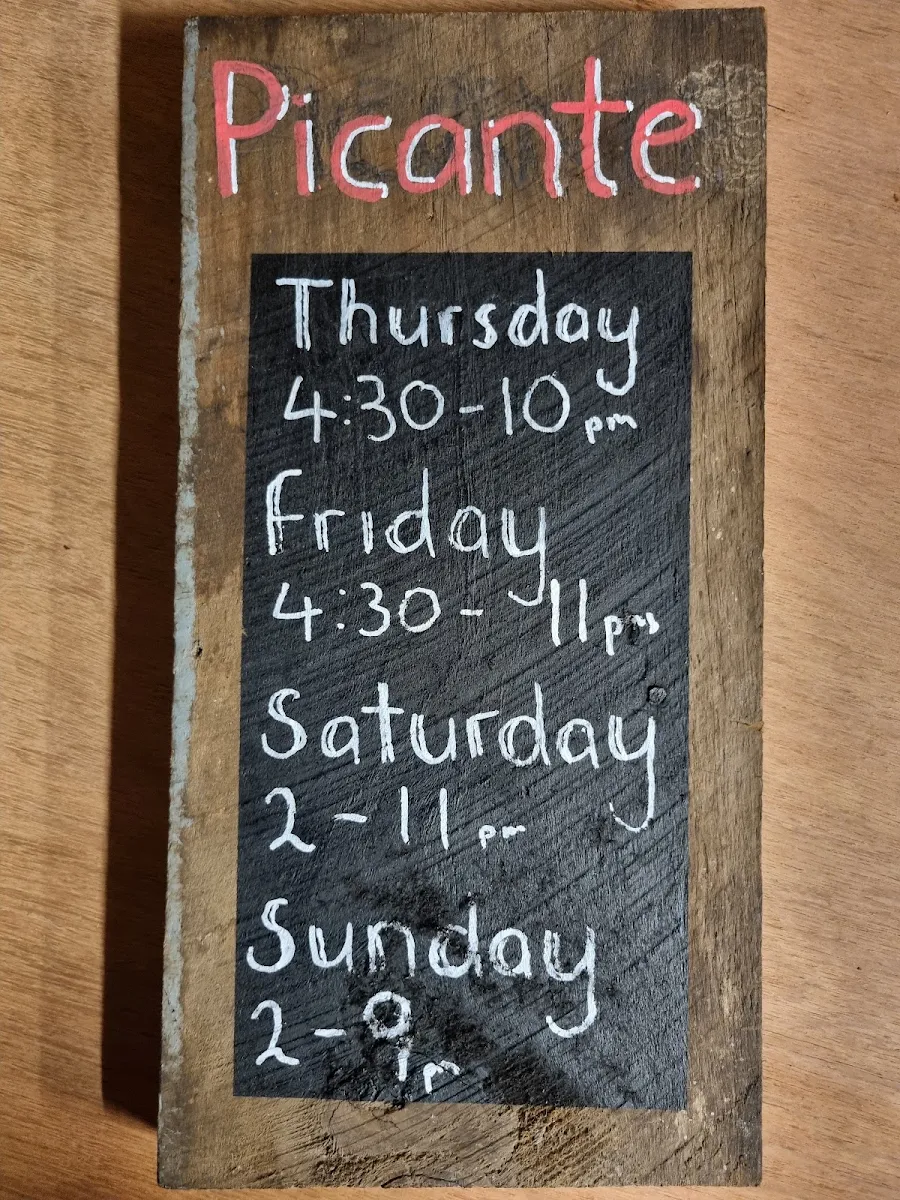 Picante
Thursday
4:30-10 pm
Friday
4:30- 11pm
Saturday
2-11 pm
Sunday
2-9pm